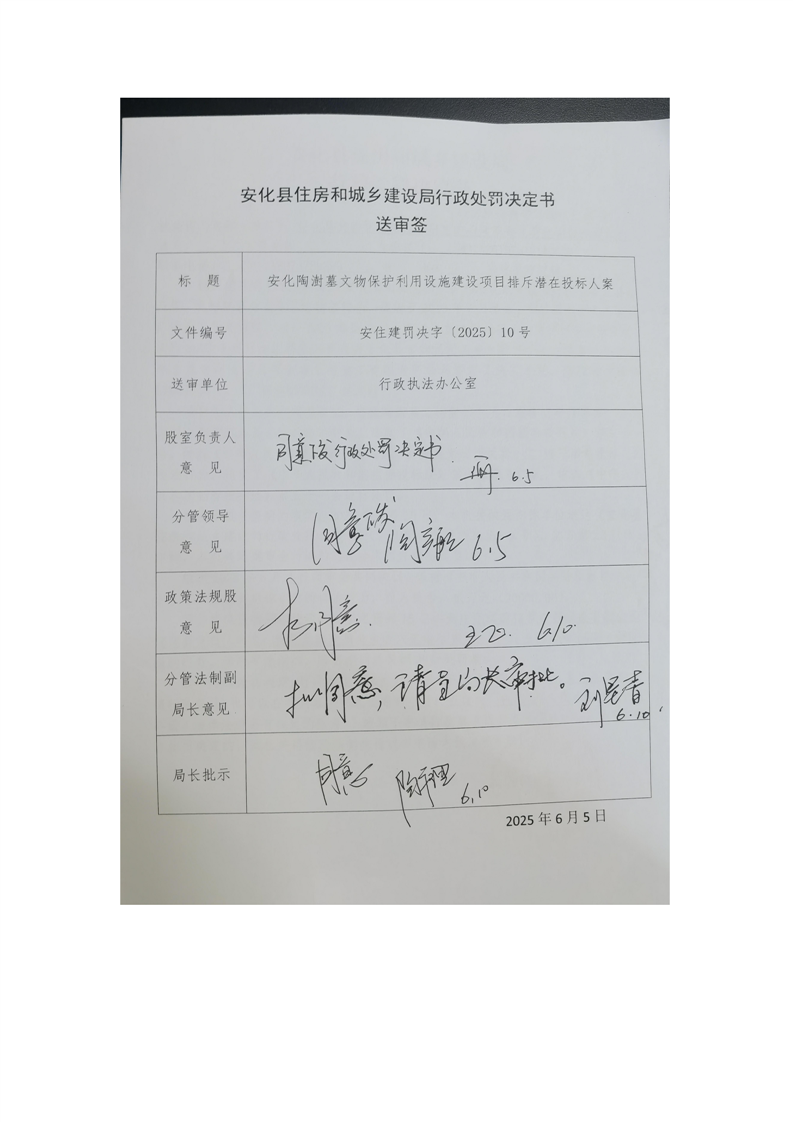 安化县住房和城乡建设局行政处罚决定书
送审签
标 题
安化陶澍墓文物保护利用设施建设项目排斥潜在投标人案
文件编号
安住建罚决字〔2025〕10 号
送审单位
行政执法办公室
股室负责人
意 见
同意下发行政处罚决定书
6.5
分管领导
意 见
同意下发
6.5
政策法规股
意 见
拟同意.
6.10.
分管法制副
局长意见
拟同意,请呈局长审批。
6.10
局长批示
同意
6.10
2025 年 6 月 5 日